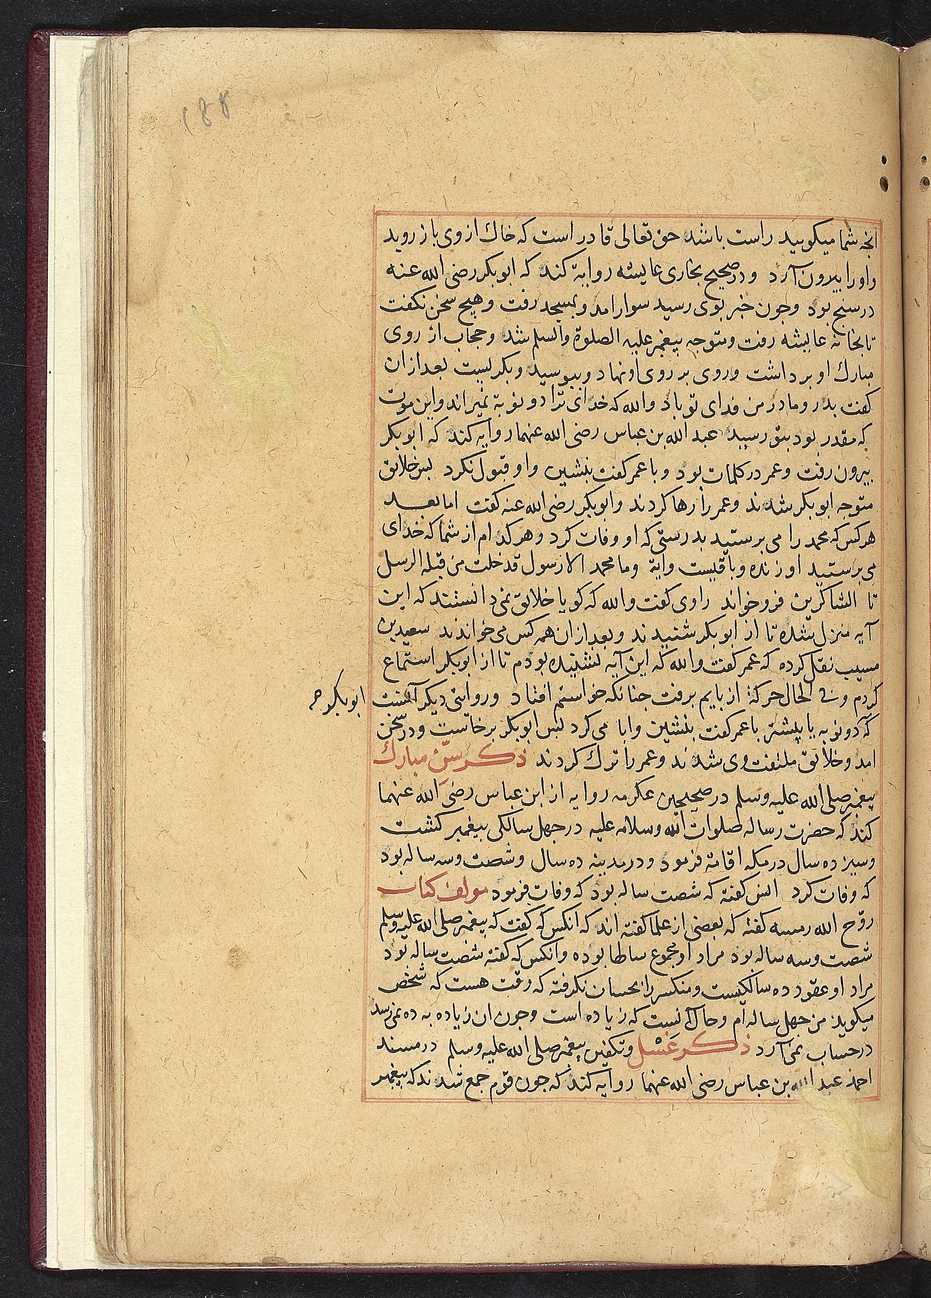 ۱۸۸
انچه شما میکویید راست باشد حق تعالی قادر است که خاك از وی باز روید
واورا بیرون آرد ودر صحیح بخاری عایشه روایة کند که ابوبکر رضی الله عنه
در سنح بود وجون خبر بوی رسید سوار امد وبمسجد رفت وهیچ سخن نکفت
تا بخانه عایشه رفت ومتوجه پیغمبر علیه الصلوة والسلم شد وحجاب از روی
مبارك او برداشت وروی بر روی او نهاد وببوسید وبکریست بعد ازان
کفت بدر ومادر من فدای تو باد والله که خدای ترا دو نوبة نمیراند واین موت
که مقدر بود بتو رسید عبد الله بن عباس رضی الله عنهما روایه کند که ابوبکر
بیرون رفت وعمر در کلمات بود وبا عمر کفت بنشین واو قبول نکرد بس خلائق
متوجه ابوبکر شدند وعمر را رها کردند وابوبکر رضی الله عنه کفت اما بعد
هرکس که محمد را می برستید بدرستی که او وفات کرد وهرکدام از شما که خدای
می برستید او زنده وباقیست وایة وما محمد الا رسول قد خلت من قبله الرسل
تا الشاکرین فرو خواند راوی کفت والله که کویا خلائق نمی دانستند که این
آیه منزل شده تا از ابوبکر شنیدند وبعد ازان همه کس می خواندند سعید بن
مسیب نقل کرده که عمر کفت والله که این آیه نشنیده بودم تا از ابوبکر استماع
کردم وفی الحال حرکة از بایم برفت جنانکه خواستم افتاد وروایتی دیکر آنست
ابوبکر
که دو نوبه یا بیشتر با عمر کفت بنشین وابا می کرد بس ابوبکر برخاست ودر سخن
امد وخلائق ملتفت وی شدند وعمر را ترك کردند ذکر سن مبارك
پیغمبر صلی الله علیه وسلم در صحیحین عکرمه روایه از ابن عباس رضی الله عنهما
کند که حضرت رسالة صلوات الله وسلامه علیه در جهل سالکی پیغمبر کشت
وسیزده سال در مکه اقامة فرمود ودر مدینه ده سال وشصت وسه ساله بود
که وفات کرد انس کفته که شصت ساله بود که وفات فرمود مولف کتاب
روّح الله رمسه کفته که بعضی از علما کفته اند که انکس که کفت که پیغمبر صلی الله علیه وسلم
شصت وسه ساله بود مراد او مجموع سالها بوده وانکس که کفته شصت ساله بود
مراد او عقود ده سالکیست ومنکسر را بحساب نکرفته که وقت هست که شخص
میکوید من جهل ساله ام وحال آنست که زیاده است وجون ان زیاده به ده نمی رسد
در حساب نمی آرد ذکر غسل وتکفین پیغمبر صلی الله علیه وسلم در مسند
احمد عبد الله بن عباس رضی الله عنهما روایه کند که جون قوم جمع شدند که پیغمبر